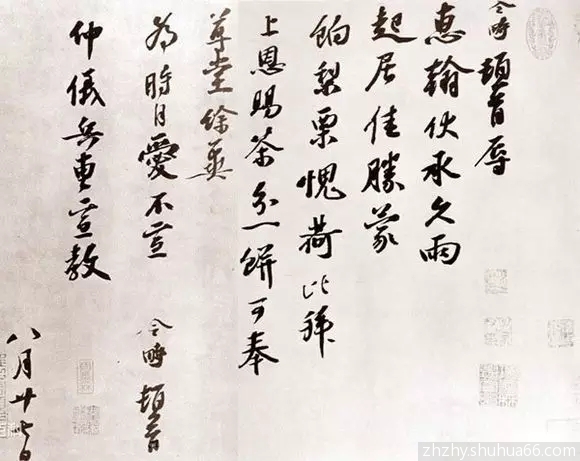 令畤頓首辱
惠翰伏承久雨
起居佳勝蒙
餉梨栗愧荷比拜
上恩賜茶分一餅可奉
尊堂餘冀
為時自愛不宣
令畤頓首
仲儀兵曹宣教
八月廿七日
zhzhy.shuhua66.com